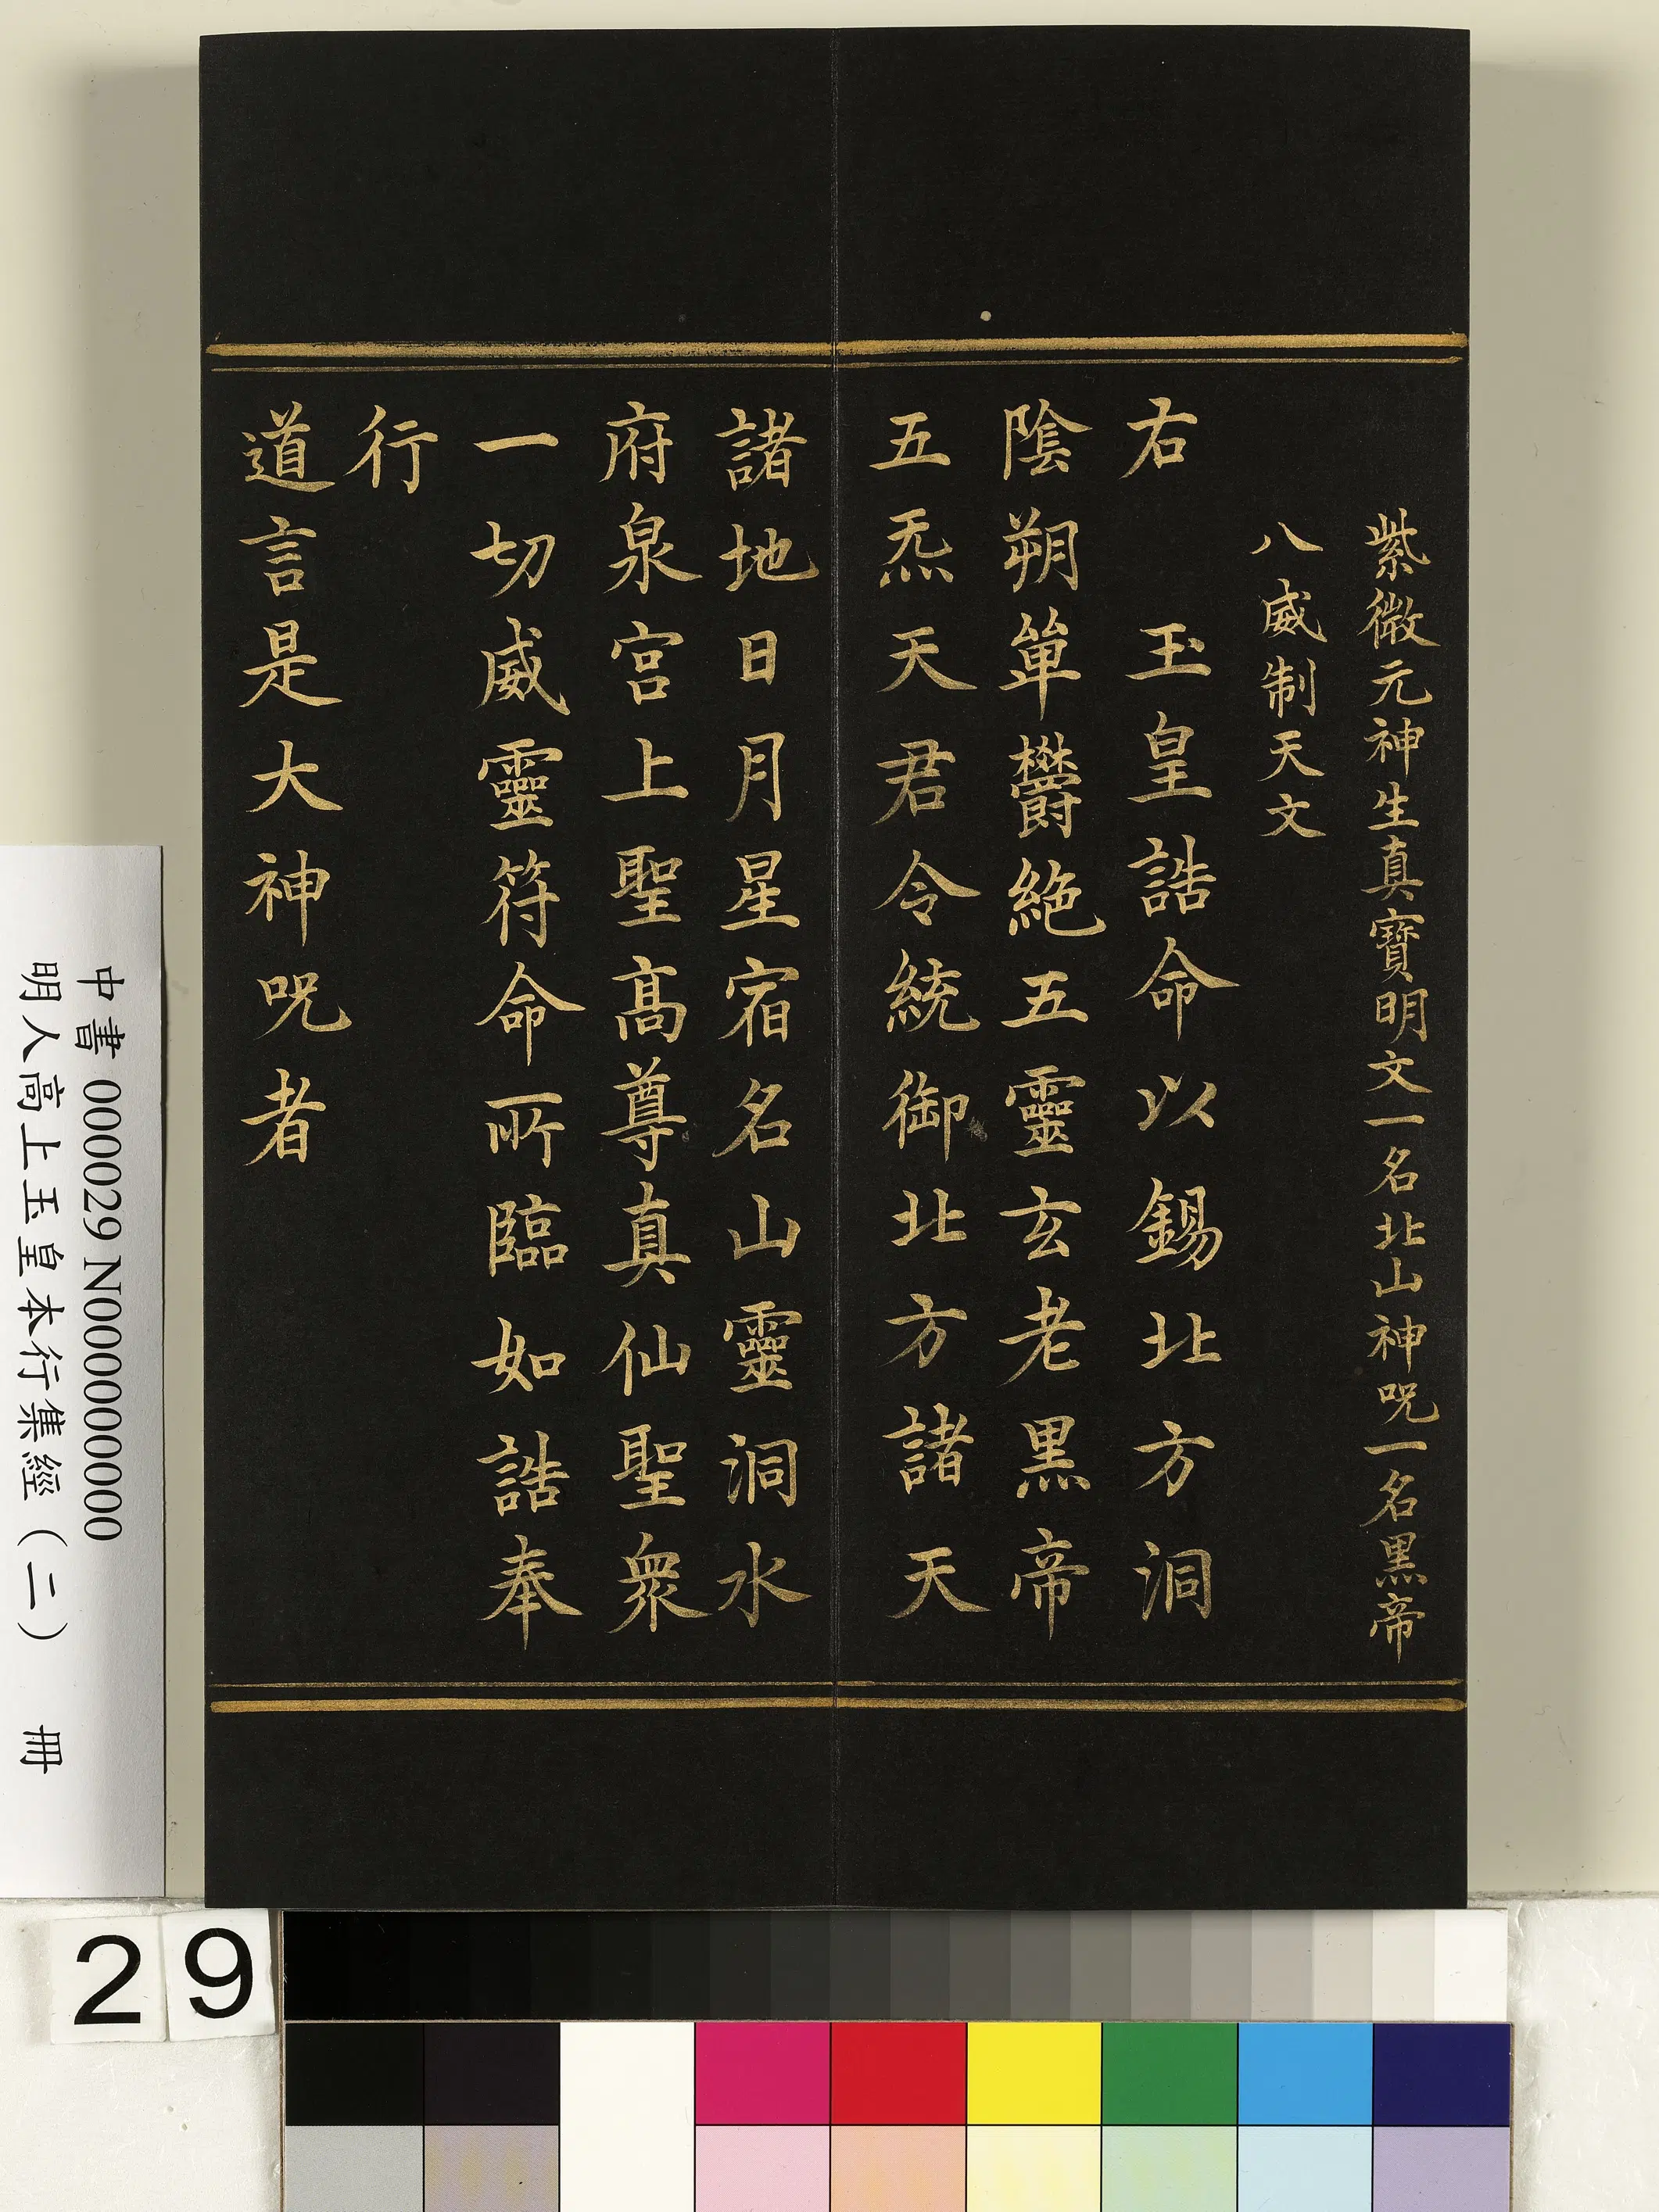 紫微元神生真寶明文一名北山神呪一名黒帝
八威制天文
右 玉皇誥命以錫北方洞
陰朔單鬱絶五靈玄老黒帝
五炁天君令統御北方諸天
諸地日月星宿名山靈洞水
府泉宮上聖髙尊真仙聖衆
一切威靈符命所臨如誥奉
行
道言是大神呪者
中書 000029 N000000000
明人高上玉皇本行集經（二） 冊
29